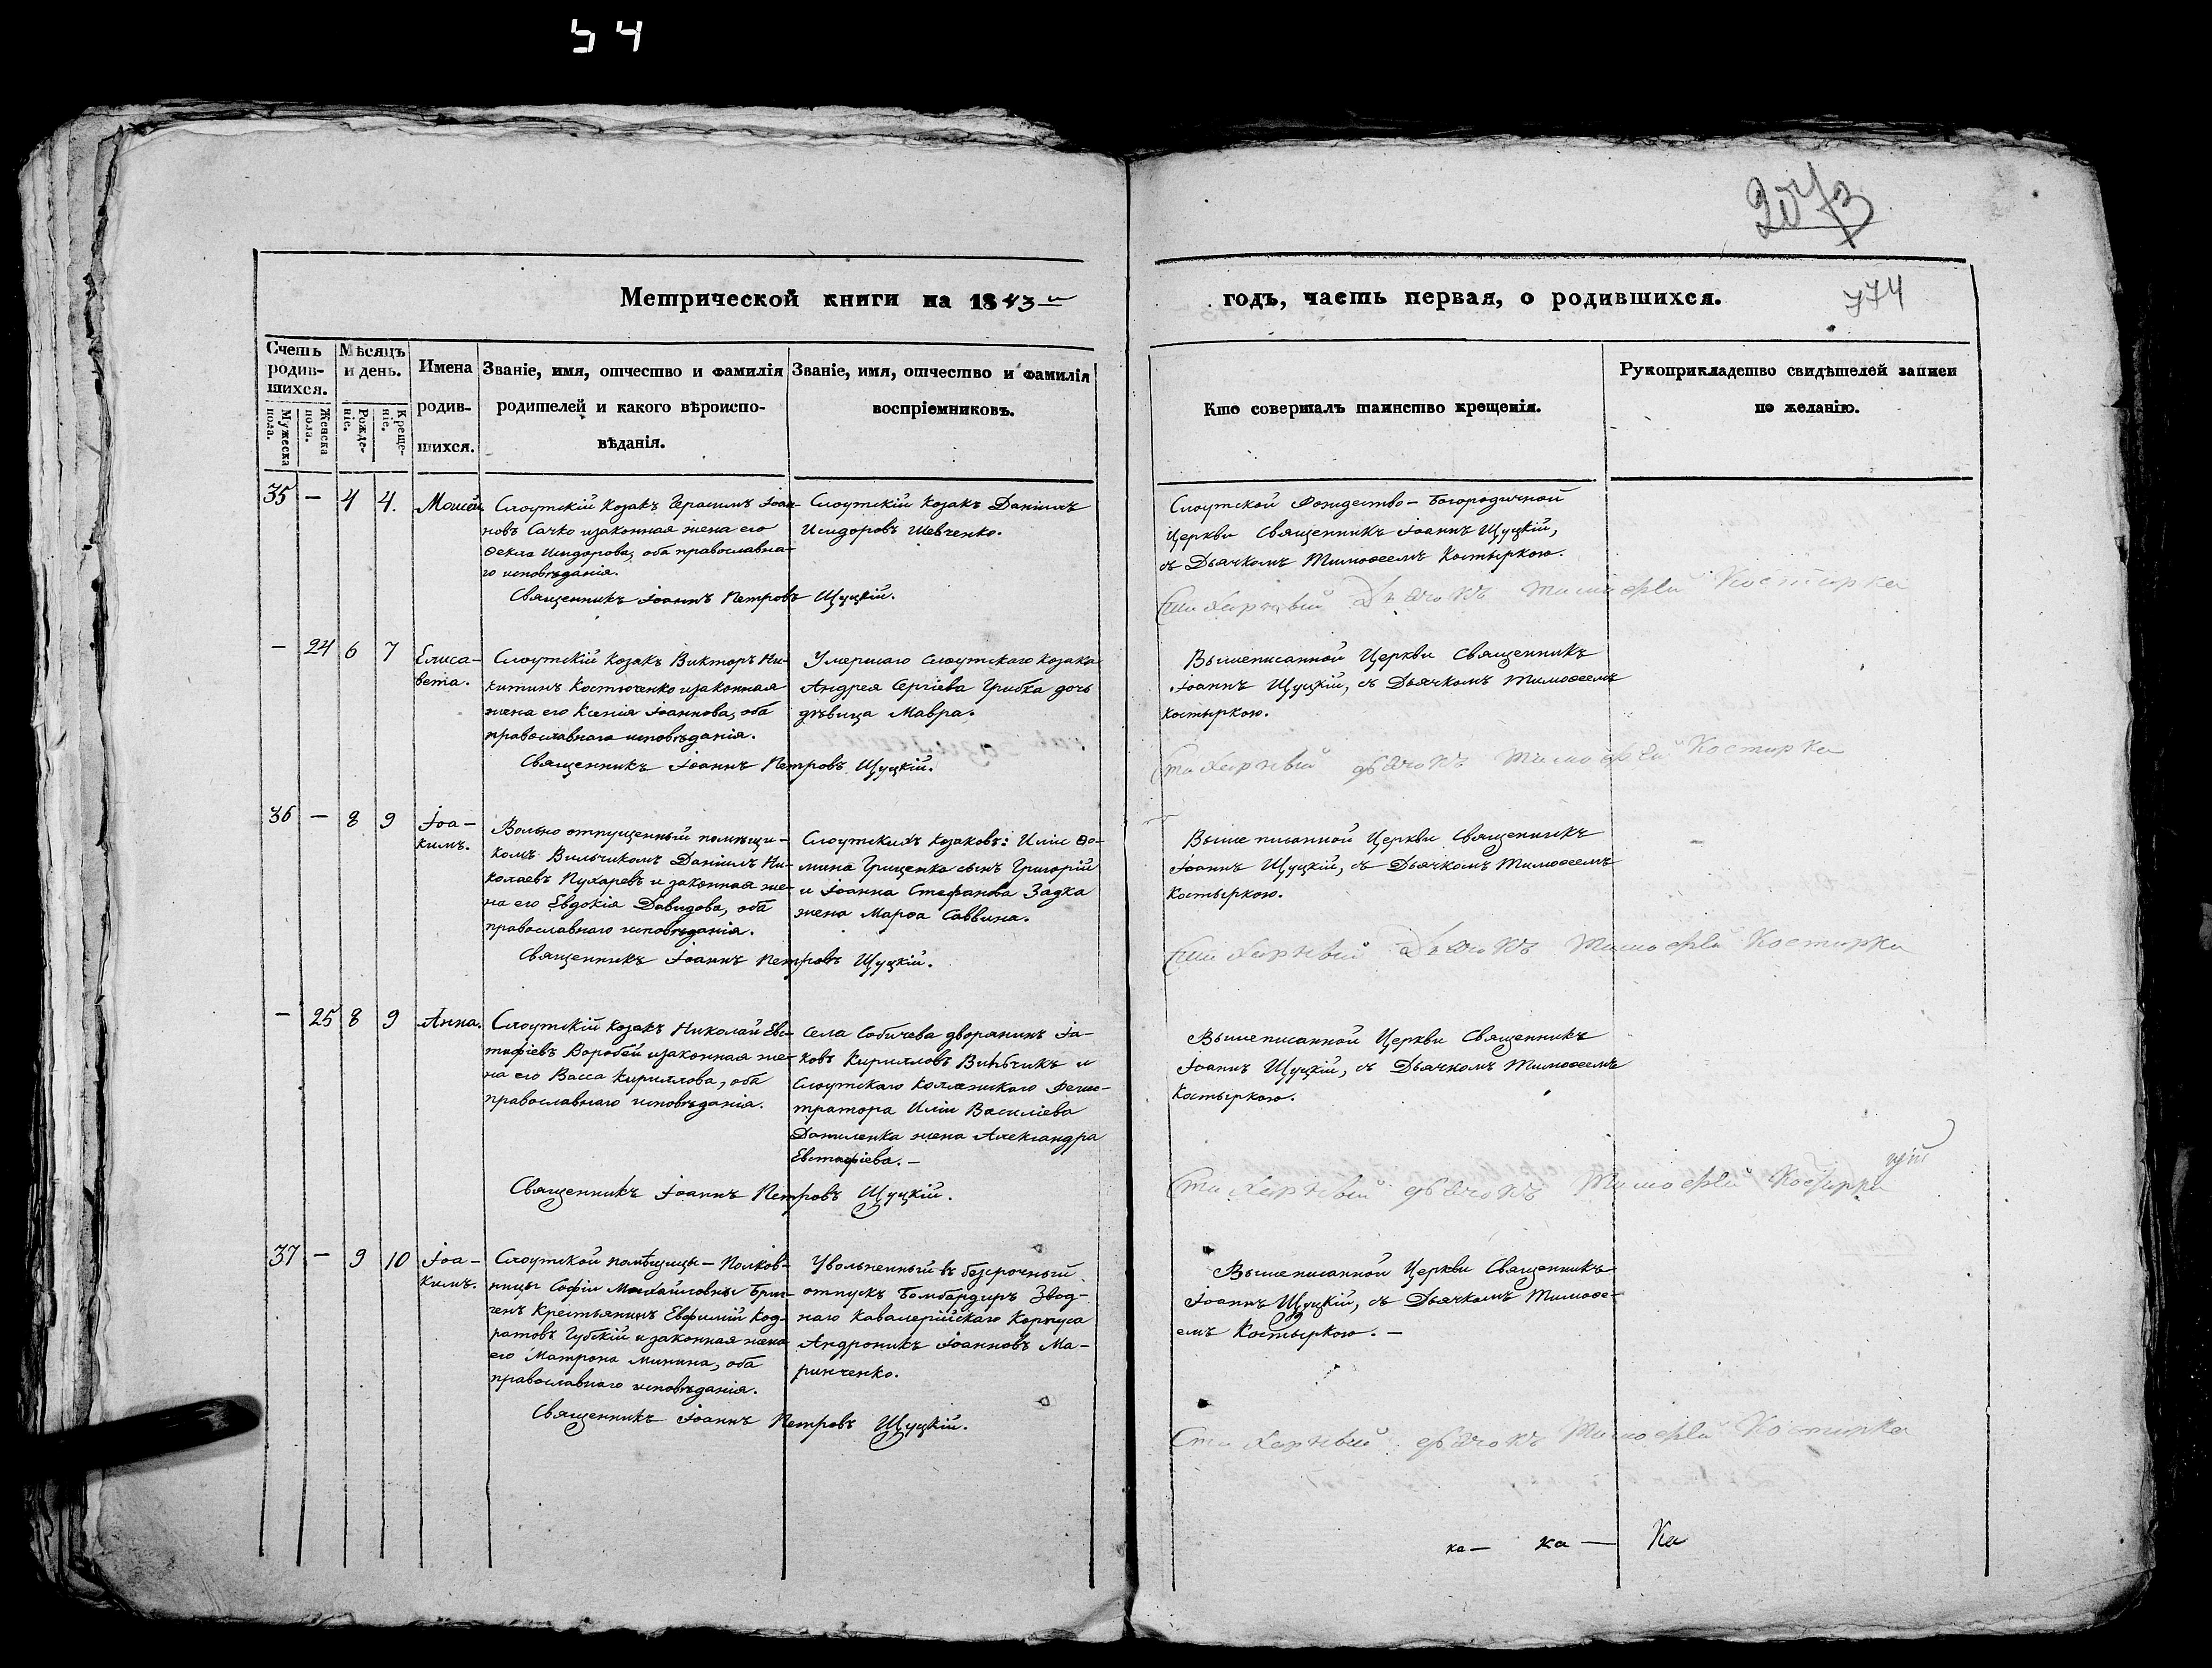 54
2073
Метрической книги на 1843 й
годъ, часть первая, о родившихся.
774
Счетъ родив- шихся.
Мужеска пола.
Женска пола.
Мѣсяцъ и день.
Рожде- ніе.
Креще- ніе.
Имена
родив-
шихся.
Званіе, имя, отчество и фамилія
родителей и какого вѣроиспо-
вѣданія.
Званіе, имя, отчество и фамилія
воспріемниковъ.
Кто совершалъ таинство крещенія.
Рукоприкладство свидѣтелей записи
по желанію.
35 — 4 4. Моисей
Слоутскій козакъ Герасимъ Іоан-
новъ Сачко и законная жена его
Ѳекла Исидорова, оба православна-
го исповѣданія.
Слоутскій козакъ Даніилъ
Исидоровъ Шевченко.
Священникъ Іоаннъ Петровъ Щуцкій.
Слоутской Рождество-Богородичной
Церкви Священникъ Іоаннъ Щуцкій,
съ Дьячкомъ Тимоѳеемъ Костыркою.
Стихарный Дьячокъ Тимофей Костирка
— 24 6 7 Елиса-
вета.
Слоутскій козакъ Викторъ Ни-
китинъ Костюченко и законная
жена его Ксенія Іоаннова, оба
православнаго исповѣданія.
Умершаго слоутскаго козака
Андрея Сергіева Грибка дочь
дѣвица Мавра.
Священникъ Іоаннъ Петровъ Щуцкій.
Вышеписанной Церкви Священникъ
Іоаннъ Щуцкій, съ Дьячкомъ Тимоѳеемъ
Костыркою.
Стихарный дьячокъ Тимофей Костирка
36 — 8 9 Іоа-
кимъ.
Вольно отпущенный помѣщи-
комъ Вильчикомъ Даніилъ Ни-
колаевъ Пухаревъ и законная же-
на его Евдокія Давидова, оба
православнаго исповѣданія.
Слоутскихъ козаковъ: Иліи Ѳо-
мина Гриценко сынъ Григорій
и Іоанна Стефанова Задка
жена Марѳа Саввина.
Священникъ Іоаннъ Петровъ Щуцкій.
Выше писанной Церкви Священникъ
Іоаннъ Щуцкій, съ Дьячкомъ Тимоѳеемъ
Костыркою.
Стихарный Дьячокъ Тимофей Костирка
— 25 8 9 Анна.
Слоутскій козакъ Николай Евс-
тафіевъ Воробей и законная же-
на его Васса Кириллова, оба
православнаго исповѣданія.
Села Собичева дворянинъ Іа-
ковъ Кирилловъ Вильчикъ и
Слоутскаго Коллежскаго Регис-
тратора Иліи Василіева
Даниленка жена Александра
Евстафіева. —
Священникъ Іоаннъ Петровъ Щуцкій.
Вышеписанной Церкви Священникъ
Іоаннъ Щуцкій, съ Дьячкомъ Тимоѳеемъ
Костыркою.
Стихарный дьячокъ Тимофей Костирка
37 — 9 10 Іоа-
кимъ.
Слоутской помѣщицы — Полков-
ницы Софіи Михайловны
Крестьянинъ Евфимій Код-
ратовъ Губскій и законная жена
его Матрона Минина, оба
православнаго исповѣданія.
Увольненный въ безсрочный
отпускъ Бомбардиръ Звод-
наго Кавалерійскаго Корпуса
Андроникъ Іоанновъ Ма-
ринченко.
Священникъ Іоаннъ Петровъ Щуцкій.
Вышеписанной Церкви Священникъ
Іоаннъ Щуцкій, съ Дьячкомъ Тимоѳе-
емъ Костыркою. —
Стихарный дьячокъ Тимофей Костирка
ка — ка — Ка